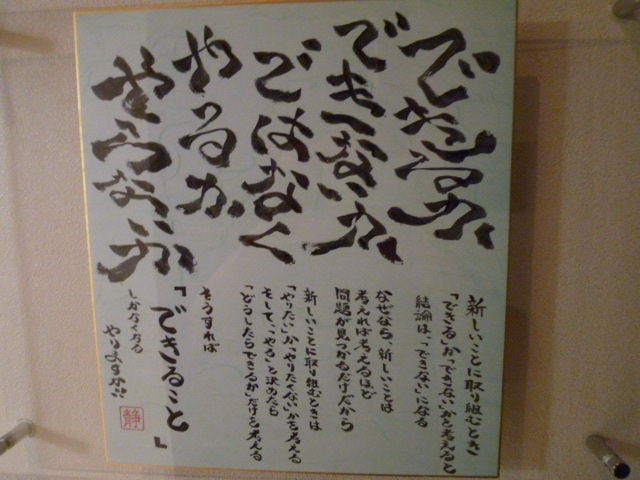 できるか
できないか
ではなく
やるか
やらないか
新しいことに取り組むとき
「できる」か「できない」かを考えると
結論は、「できない」になる
なぜなら、新しいことは
考えれば考えるほど
問題が見つかるだけだから
新しいことに取り組むときは
「やりたい」か「やりたくない」かを考える
そして、「やる」と決めたら
「どうしたらできるか」だけを考える
そうすれば
「できること」
しかなくなる
やりますか!!
静